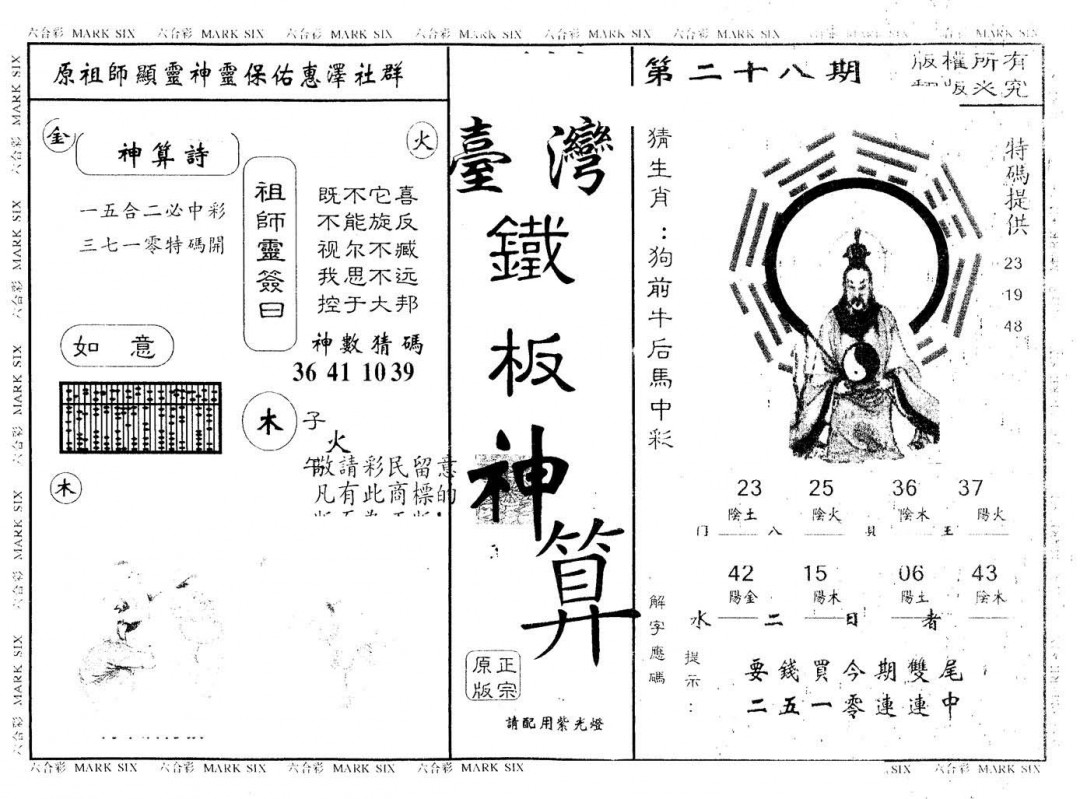 六合彩 MARK SIX 六合彩 MARK SIX 六合彩 MARK SIX 六合彩 MARK SIX 六合彩 MARK SIX 六合彩 MARK SIX MARK SIX
原祖師顯靈神靈保佑惠澤社群
金
火
神算詩
一五合二必中彩
三七一零特碼開
祖師靈簽曰
既不它喜
不能旋反
视尔不臧
我思不远
控于大邦
神數猜碼
36 41 10 39
如意
木
子
火
午
木
敬請彩民留意
凡有此商標的
臺灣
鐵
板
神
算
正宗
原版
請配用紫光燈
第二十八期
版權所有
必究
猜生肖：狗前牛后馬中彩
特碼提供
23
19
48
23 25 36 37
陰土 陰火 陰木 陽火
门 八 貝 王
42 15 06 43
陽金 陽木 陽土 陰木
水 二 日 者
解字應碼
提示：
要錢買今期雙尾
二五一零連連中
六合彩 MARK SIX 六合彩 MARK SIX 六合彩 MARK SIX 六合彩 MARK SIX SIX 六合彩 MARK SIX
六合彩 MARK SIX 六合彩 MARK SIX 六合彩 MARK SIX 六合彩 MARK SIX 六合彩 MARK SIX